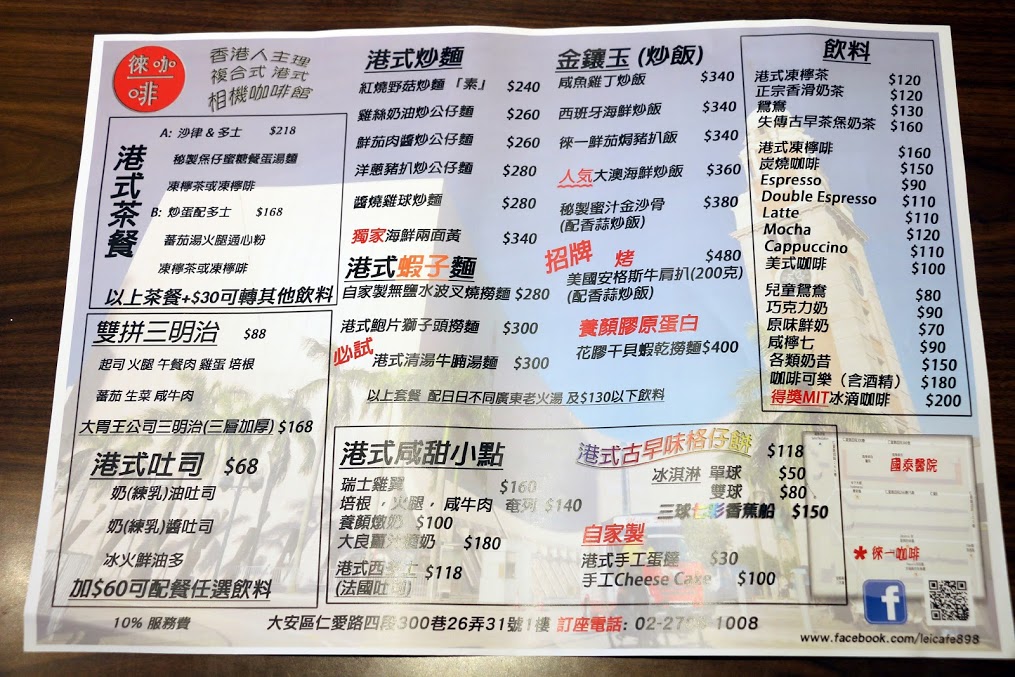 徠咖
啡
香港人主理
複合式 港式
相機咖啡館
港式茶餐
A: 沙律 & 多士 $218
秘製煲仔蜜糖餐蛋湯麵
凍檸茶或凍檸啡
B: 炒蛋配多士 $168
蕃茄湯火腿通心粉
凍檸茶或凍檸啡
以上茶餐+$30可轉其他飲料
雙拼三明治 $88
起司 火腿 午餐肉 雞蛋 培根
蕃茄 生菜 咸牛肉
大胃王公司三明治(三層加厚) $168
港式吐司 $68
奶(練乳)油吐司
奶(練乳)醬吐司
冰火鮮油多
加$60可配餐任選飲料
10% 服務費
港式炒麵
紅燒野菇炒麵 「素」 $240
雞絲奶油炒公仔麵 $260
鮮茄肉醬炒公仔麵 $260
洋蔥豬扒炒公仔麵 $280
醬燒雞球炒麵 $280
獨家海鮮兩面黃 $340
港式蝦子麵
自家製無鹽水波叉燒撈麵 $280
港式鮑片獅子頭撈麵 $300
必試 港式清湯牛腩湯麵 $300
金鑲玉 (炒飯)
咸魚雞丁炒飯 $340
西班牙海鮮炒飯 $340
徠一鮮茄焗豬扒飯 $340
人気大澳海鮮炒飯 $360
秘製蜜汁金沙骨 $380
(配香蒜炒飯)
招牌 烤 $480
美國安格斯牛肩扒(200克)
(配香蒜炒飯)
養顏膠原蛋白
花膠干貝蝦乾撈麵 $400
以上套餐 配日日不同廣東老火湯 及$130以下飲料
飲料
港式凍檸茶 $120
正宗香滑奶茶 $120
鴛鴦 $130
失傳古早茶煲奶茶 $160
港式凍檸啡 $160
炭燒咖啡 $150
Espresso $90
Double Espresso $110
Latte $110
Mocha $120
Cappuccino $110
美式咖啡 $100
兒童鴛鴦 $80
巧克力奶 $90
原味鮮奶 $70
咸檸七 $90
各類奶昔 $150
咖啡可樂（含酒精） $180
得獎MIT冰滴咖啡 $200
港式咸甜小點
瑞士雞翼 $160
培根，火腿，咸牛肉 奄列 $140
養顏燉奶 $100
大良薑汁燉奶 $180
港式西多士 $118
(法國吐司)
港式古早味格仔餅 $118
冰淇淋 單球 $50
雙球 $80
三球七彩香蕉船 $150
自家製
港式手工蛋撻 $30
手工Cheese Cake $100
國泰醫院
* 徠一咖啡
大安區仁愛路四段300巷26弄31號1樓 訂座電話: 02-27 1008
www.facebook.com/leicafe898